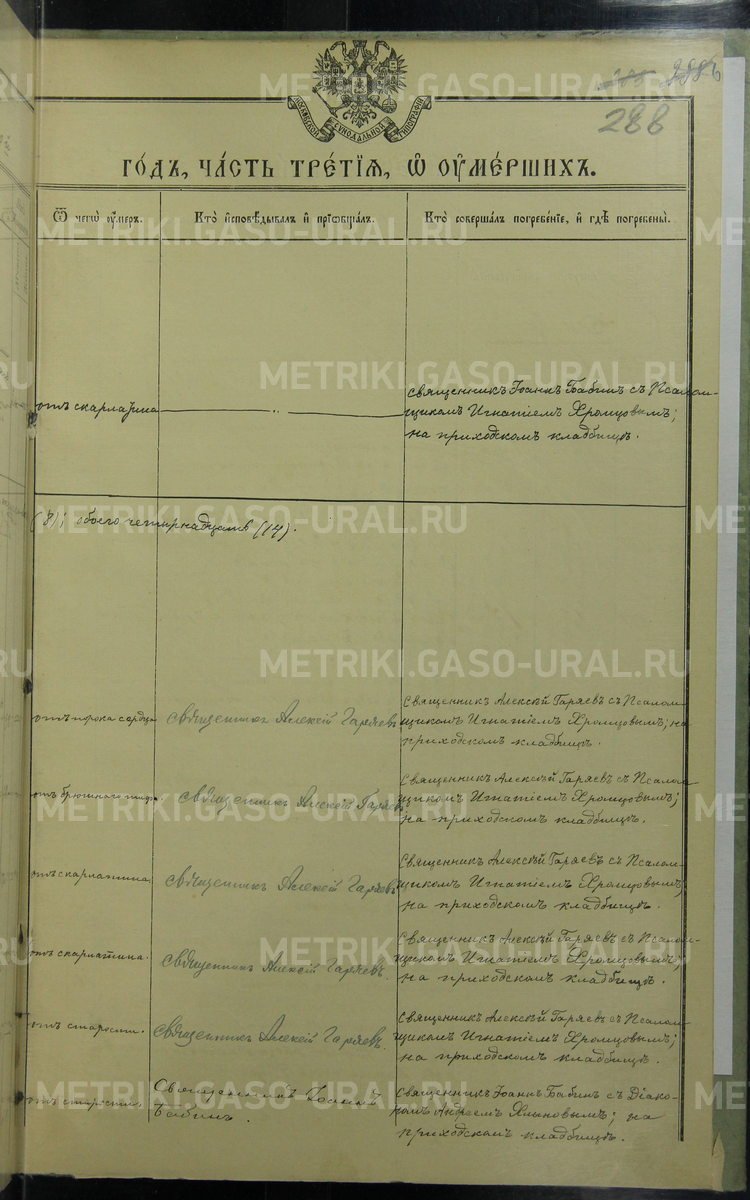 288
МОСКОВСКОЙ СѶНОДАЛЬНОЙ ТИПОГРАФІИ
ГО́ДЪ, ЧА́СТЬ ТРЕ́ТІѦ, Ѡ҆ ОУ҆МЕ́РШИХЪ.
Ѿ чегѡ̀ оу҆́меръ.
Кто̀ и҆сповѣ́дывалъ и҆ прїѡбща́лъ.
Кто̀ соверша́лъ погребе́нїе, и҆ гдѣ̀ погребены̀.
отъ скарлатина
Священникъ Іоаннъ Бабинъ съ Псалом-
щикомъ Игнатіемъ Хромцовымъ;
на приходскомъ кладбищѣ.
(8); обоего четырнадцать (14).
отъ порока сердца
Священникъ Алексѣй Гаряевъ
Священникъ Алексѣй Гаряевъ съ Псалом-
щикомъ Игнатіемъ Хромцовымъ; на
приходскомъ кладбищѣ.
отъ брюшного тифа
Священникъ Алексѣй Гаряевъ
Священникъ Алексѣй Гаряевъ съ Псалом-
щикомъ Игнатіемъ Хромцовымъ;
на приходскомъ кладбищѣ.
отъ скарлатина
Священникъ Алексѣй Гаряевъ
Священникъ Алексѣй Гаряевъ съ Псалом-
щикомъ Игнатіемъ Хромцовымъ;
на приходскомъ кладбищѣ.
отъ скарлатина.
Священникъ Алексѣй Гаряевъ.
Священникъ Алексѣй Гаряевъ съ Псалом-
щикомъ Игнатіемъ Хромцовымъ;
на приходскомъ кладбищѣ.
отъ старости.
Священникъ Алексѣй Гаряевъ.
Священникъ Алексѣй Гаряевъ съ Псалом-
щикомъ Игнатіемъ Хромцовымъ;
на приходскомъ кладбищѣ.
отъ старости.
Священникъ Іоаннъ
Бабинъ.
Священникъ Іоаннъ Бабинъ съ Діако-
номъ Андреемъ Хлыновымъ; на
приходскомъ кладбищѣ.
METRIKI.GASO-URAL.RU